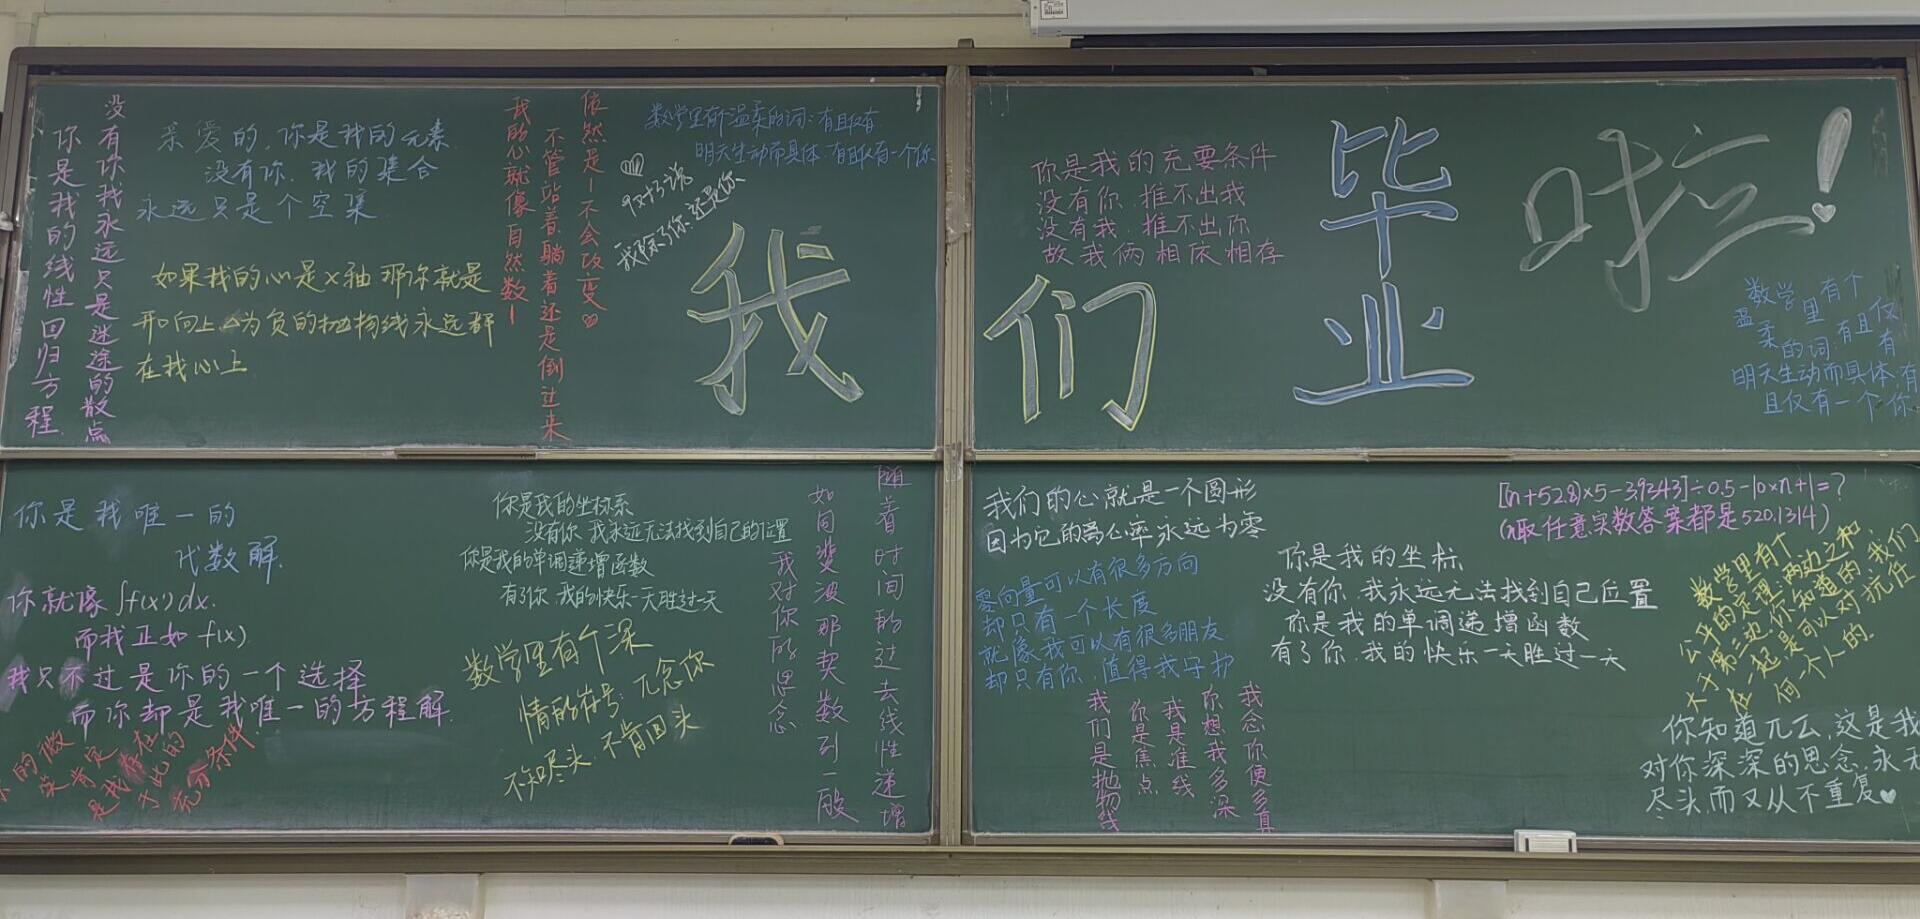 没有你我永远只是迷途的散点
你是我的线性回归方程
亲爱的,你是我的元素
没有你,我的集合
永远只是个空集
如果我的心是x轴那你就是
开口向上△为负的抛物线永远都
在我心上
依然是1不会改变♡
不管站着躺着还是倒过来
我的心就像自然数1
数学里有个温柔的词:有且仅有
明天生动而具体,有且仅有一个你
对我说
我除了你,还是你
我们毕业啦!
你是我的充要条件
没有你,推不出我
没有我,推不出你
故我俩相依相存
数学里有个
温柔的词:有且仅有
明天生动而具体,有
且仅有一个你
你是我唯一的
代数解
你就像∫f(x)dx.
而我正如f(x)
我只不过是你的一个选择
而你却是我唯一的方程解
的微
笑肯定
是我存在
于此的
充分条件
你是我的坐标系
没有你,我永远无法找到自己的位置
你是我的单调递增函数
有了你,我的快乐一天胜过一天
数学里有个深
情的符号:兀念你
不知尽头,不肯回头
随着时间的过去线性递增
如同斐波那契数列一般
我对你的思念
我们的心就是一个圆形
因为它的离心率永远为零
零向量可以有很多方向
却只有一个长度
就像我可以有很多朋友
却只有你,值得我守护
我念你便多真
你想我多深
我是准线
你是焦点
我们是抛物线
[(n+52.8)×5-3.9343]÷0.5-10×n+1=?
(n取任意实数答案都是520.1314)
你是我的坐标
没有你,我永远无法找到自己位置
你是我的单调递增函数
有了你,我的快乐一天胜过一天
数学里有个
公平的定理:两边之和
大于第三边,你知道的,我们
在一起,是可以对抗任
何一个人的.
你知道兀么,这是我
对你深深的思念,永无
尽头而又从不重复♥